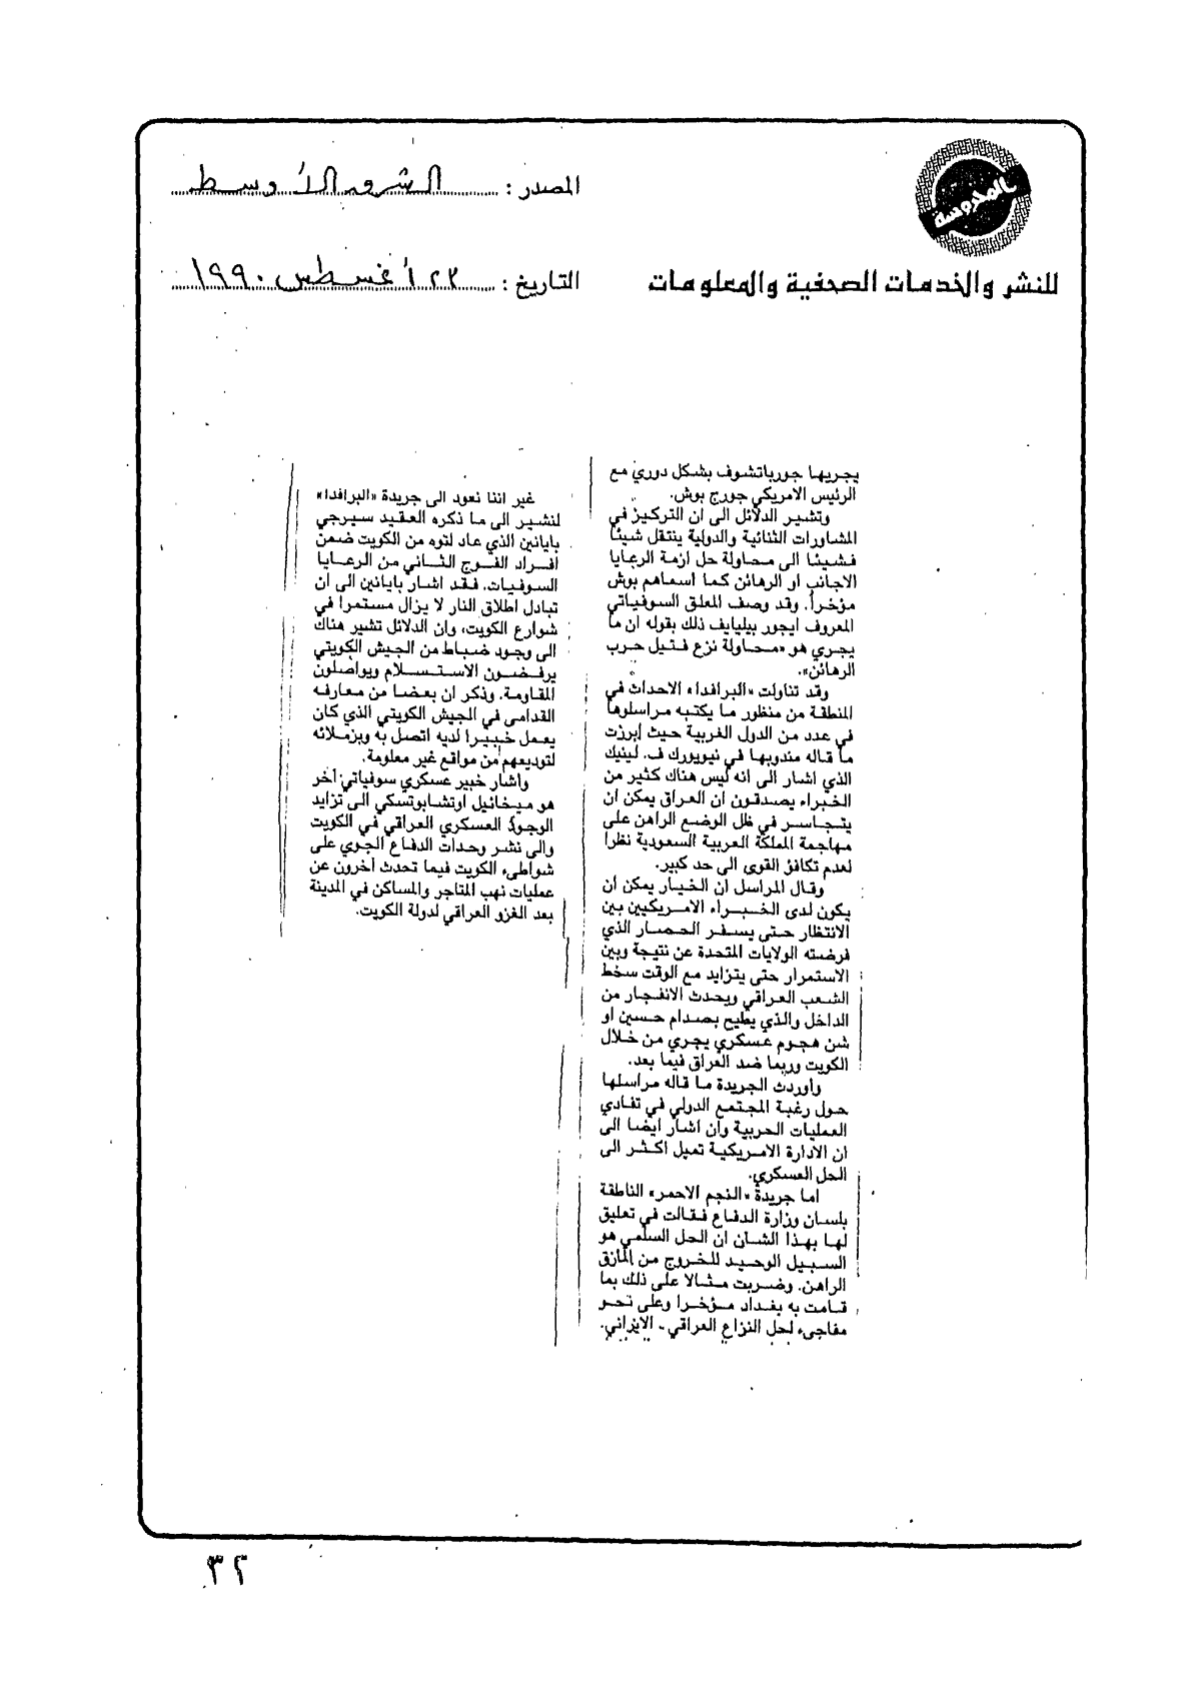 المحروسة
للنشر والخدمات الصحفية والمعلومات
المصدر : الشرق الأوسط
التاريخ : ٢٣ أغسطس ١٩٩٠
يجريها جورباتشوف بشكل دوري مع
الرئيس الامريكي جورج بوش.
وتشير الدلائل الى ان التركيز في
المشاورات الثنائية والدولية ينتقل شيئا
فشيئا الى محاولة حل ازمة الرعايا
الاجانب او الرهائن كما اسماهم بوش
مؤخراً. وقد وصف المعلق السوفياتي
المعروف ايجور بيليايف ذلك بقوله ان ما
يجري هو «محاولة نزع فتيل حرب
الرهائن».
وقد تناولت «البرافدا» الاحداث في
المنطقة من منظور ما يكتبه مراسلوها
في عدد من الدول الغربية حيث أبرزت
ما قاله مندوبها في نيويورك ف. لينيك
الذي اشار الى انه ليس هناك كثير من
الخبراء يصدقون ان العراق يمكن ان
يتجاسر في ظل الوضع الراهن على
مهاجمة المملكة العربية السعودية نظرا
لعدم تكافؤ القوى الى حد كبير.
وقال المراسل ان الخيار يمكن ان
يكون لدى الخبراء الامريكيين بين
الانتظار حتى يسفر الحصار الذي
فرضته الولايات المتحدة عن نتيجة وبين
الاستمرار حتى يتزايد مع الوقت سخط
الشعب العراقي ويحدث الانفجار من
الداخل والذي يطيح بصدام حسين او
شن هجوم عسكري يجري من خلال
الكويت وربما ضد العراق فيما بعد.
وأوردت الجريدة ما قاله مراسلها
حول رغبة المجتمع الدولي في تفادي
العمليات الحربية وان اشار ايضا الى
ان الادارة الامريكية تميل اكثر الى
الحل العسكري.
اما جريدة «النجم الاحمر» الناطقة
بلسان وزارة الدفاع فقالت في تعليق
لها بهذا الشان ان الحل السلمي هو
السبيل الوحيد للخروج من المازق
الراهن. وضربت مثالا على ذلك بما
قامت به بغداد مؤخرا وعلى نحو
مفاجىء لحل النزاع العراقي - الايراني.
غير اننا نعود الى جريدة «البرافدا»
لنشير الى ما ذكره العقيد سيرجي
بايانين الذي عاد لتوه من الكويت ضمن
افراد الفوج الثاني من الرعايا
السوفيات. فقد اشار بايانين الى ان
تبادل اطلاق النار لا يزال مستمرا في
شوارع الكويت، وان الدلائل تشير هناك
الى وجود ضباط من الجيش الكويتي
يرفضون الاستسلام ويواصلون
المقاومة. وذكر ان بعضا من معارفه
القدامى في الجيش الكويتي الذي كان
يعمل خبيرا لديه اتصل به وبزملائه
لتوديعهم من مواقع غير معلومة.
وأشار خبير عسكري سوفياتي آخر
هو ميخائيل اوتشابوتسكي الى تزايد
الوجود العسكري العراقي في الكويت
والى نشر وحدات الدفاع الجوي على
شواطىء الكويت فيما تحدث آخرون عن
عمليات نهب المتاجر والمساكن في المدينة
بعد الغزو العراقي لدولة الكويت.
٣٢